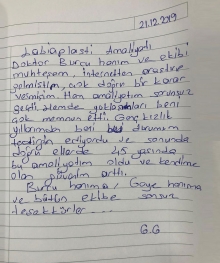 21.12.2019
Labiaplasti Ameliyatı
Doktor Burcu hanım ve ekibi
muhteşem, internetten araştırıp
gelmiştim, çok doğru bir karar
vermişim. Hem ameliyatım sorunsuz
geçti hemde yaklaşımları beni
çok memnun etti. Genç kızlık
yıllarımdan beri bu durumum
ediyordu ve sonunda
doğru ellerde 45 yaşında
bu ameliyatım oldu ve kendime
olan güvenim arttı.
Burcu hanıma, Gaye hanıma
ve bütün ekibe sonsuz
teşekkürler....
G.G